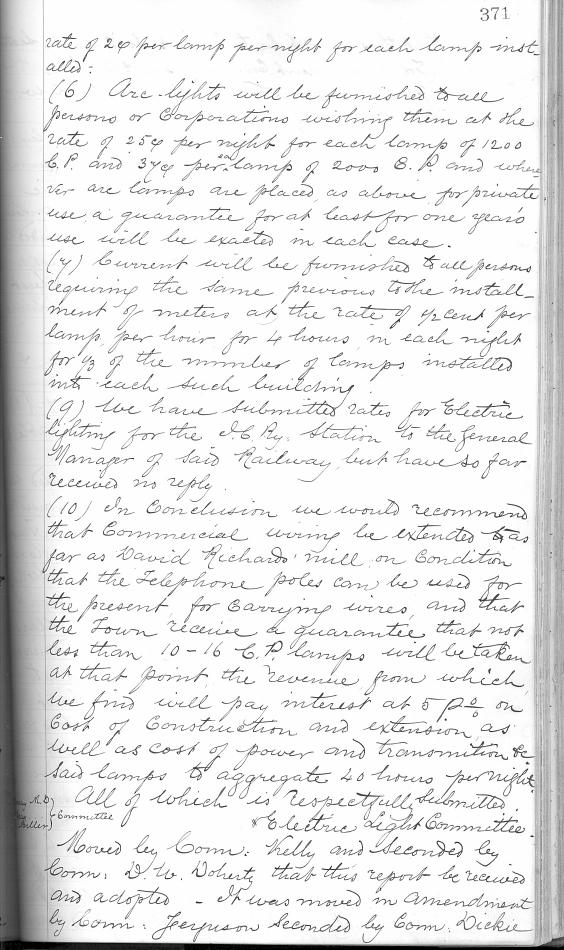 371
rate of 2¢ per lamp per night for each lamp inst-
alled:
(6) Arc-lights will be furnished to all
persons or Corporations wishing them at the
rate of 25¢ per night for each lamp of 1200
C.P. and 37¢ per ea lamp of 2000 C.P. and where
ver arc lamps are placed, as above, for private
use, a guarantee for at least for one year's
use will be exacted in each case.
(7) Current will be furnished to all persons
requiring the same previous to the install-
ment of meters at the rate of ½ cent per
lamp, per hour for 4 hours, in each night
for ⅓ of the number of lamps installed
into each such building.
(9) We have submitted rates for Electric
lighting for the I.C.Ry. Station to the General
Manager of said Railway, but have so far
received no reply.
(10) In Conclusion we would recommend
that Commercial wiring be extended as
far as David Richards' mill on Condition
that the Telephone poles can be used for
the present, for Carrying wires, and that
the Town receive a guarantee that not
less than 10-16 C.P. lamps will be taken
at that point, the revenue from which
we find will pay interest at 5 P% on
Cost of Construction and extension, as
well as cost of power and transmition &c
said lamps to aggregate 40 hours per night.
All of which is respectfully submitted.
Committee
Electric Light Committee.
Moved by Conn: Kelly and Seconded by
Conn: D. W. Doherty that this report be received
and adopted - It was moved in amendment
by Conn: Ferguson Seconded by Conn: Dickie